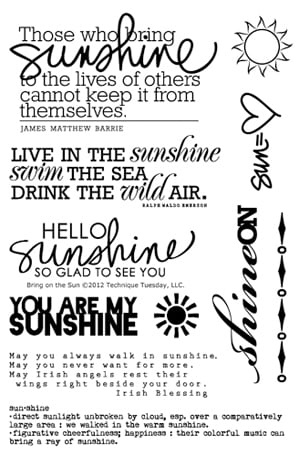 Those who bring
sunshine
to the lives of others
cannot keep it from
themselves.
JAMES MATTHEW BARRIE
LIVE IN THE sunshine
swim THE SEA
DRINK THE wild AIR.
RALPH WALDO EMERSON
HELLO
sunshine
SO GLAD TO SEE YOU
Bring on the Sun ©2012 Technique Tuesday, LLC.
YOU ARE MY
SUNSHINE
May you always walk in sunshine.
May you never want for more.
May Irish angels rest their
wings right beside your door.
Irish Blessing
sun·shine
·direct sunlight unbroken by cloud, esp. over a comparatively
large area : we walked in the warm sunshine.
·figurative cheerfulness; happiness : their colorful music can
bring a ray of sunshine.
sun=
shine ON